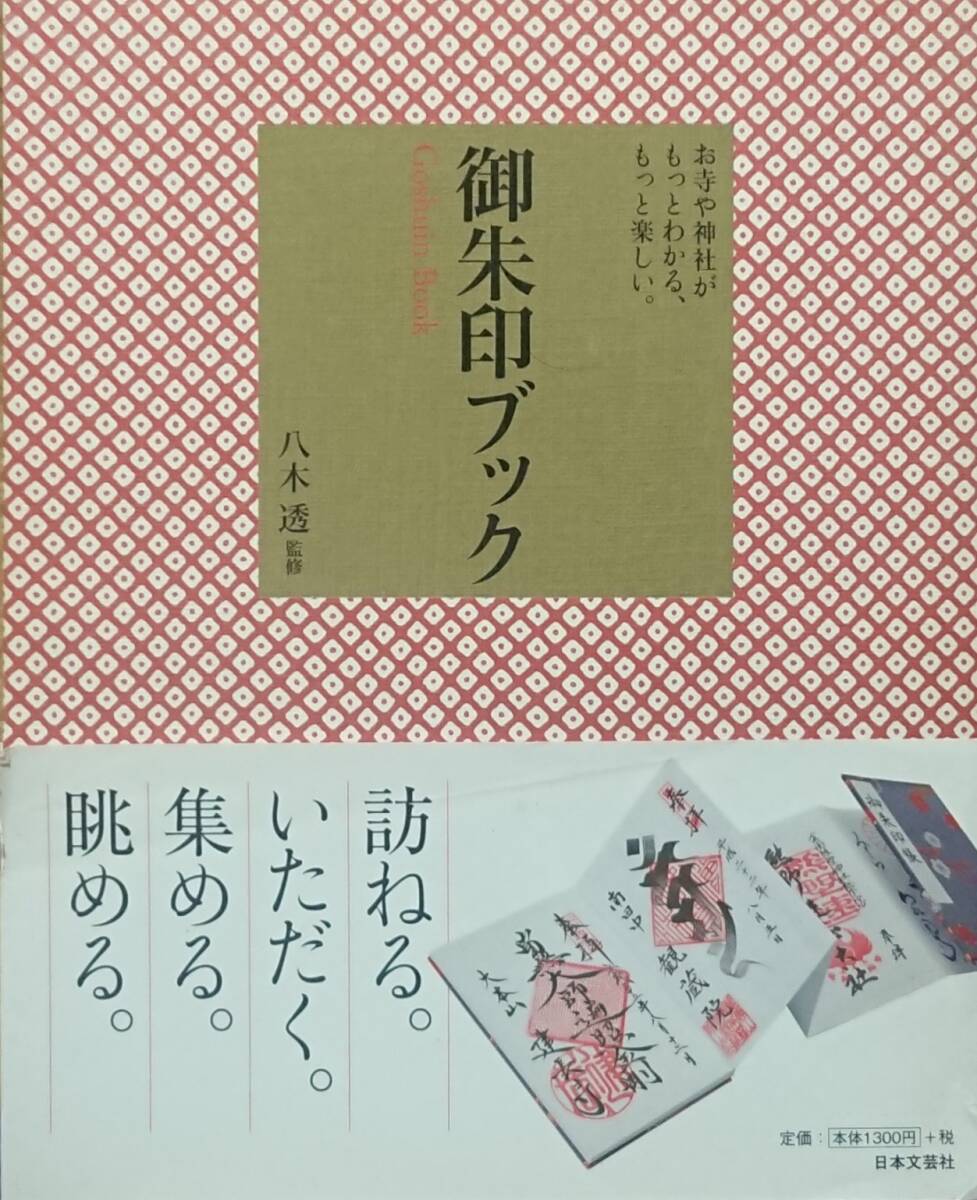 お寺や神社が
もっとわかる、
もっと楽しい。
御朱印ブック
Goshuin Book
八木透 監修
訪ねる。
いただく。
集める。
眺める。
奉拝
南田中
観蔵院
奉拝
大本山
定価:本体1300円+税
日本文芸社